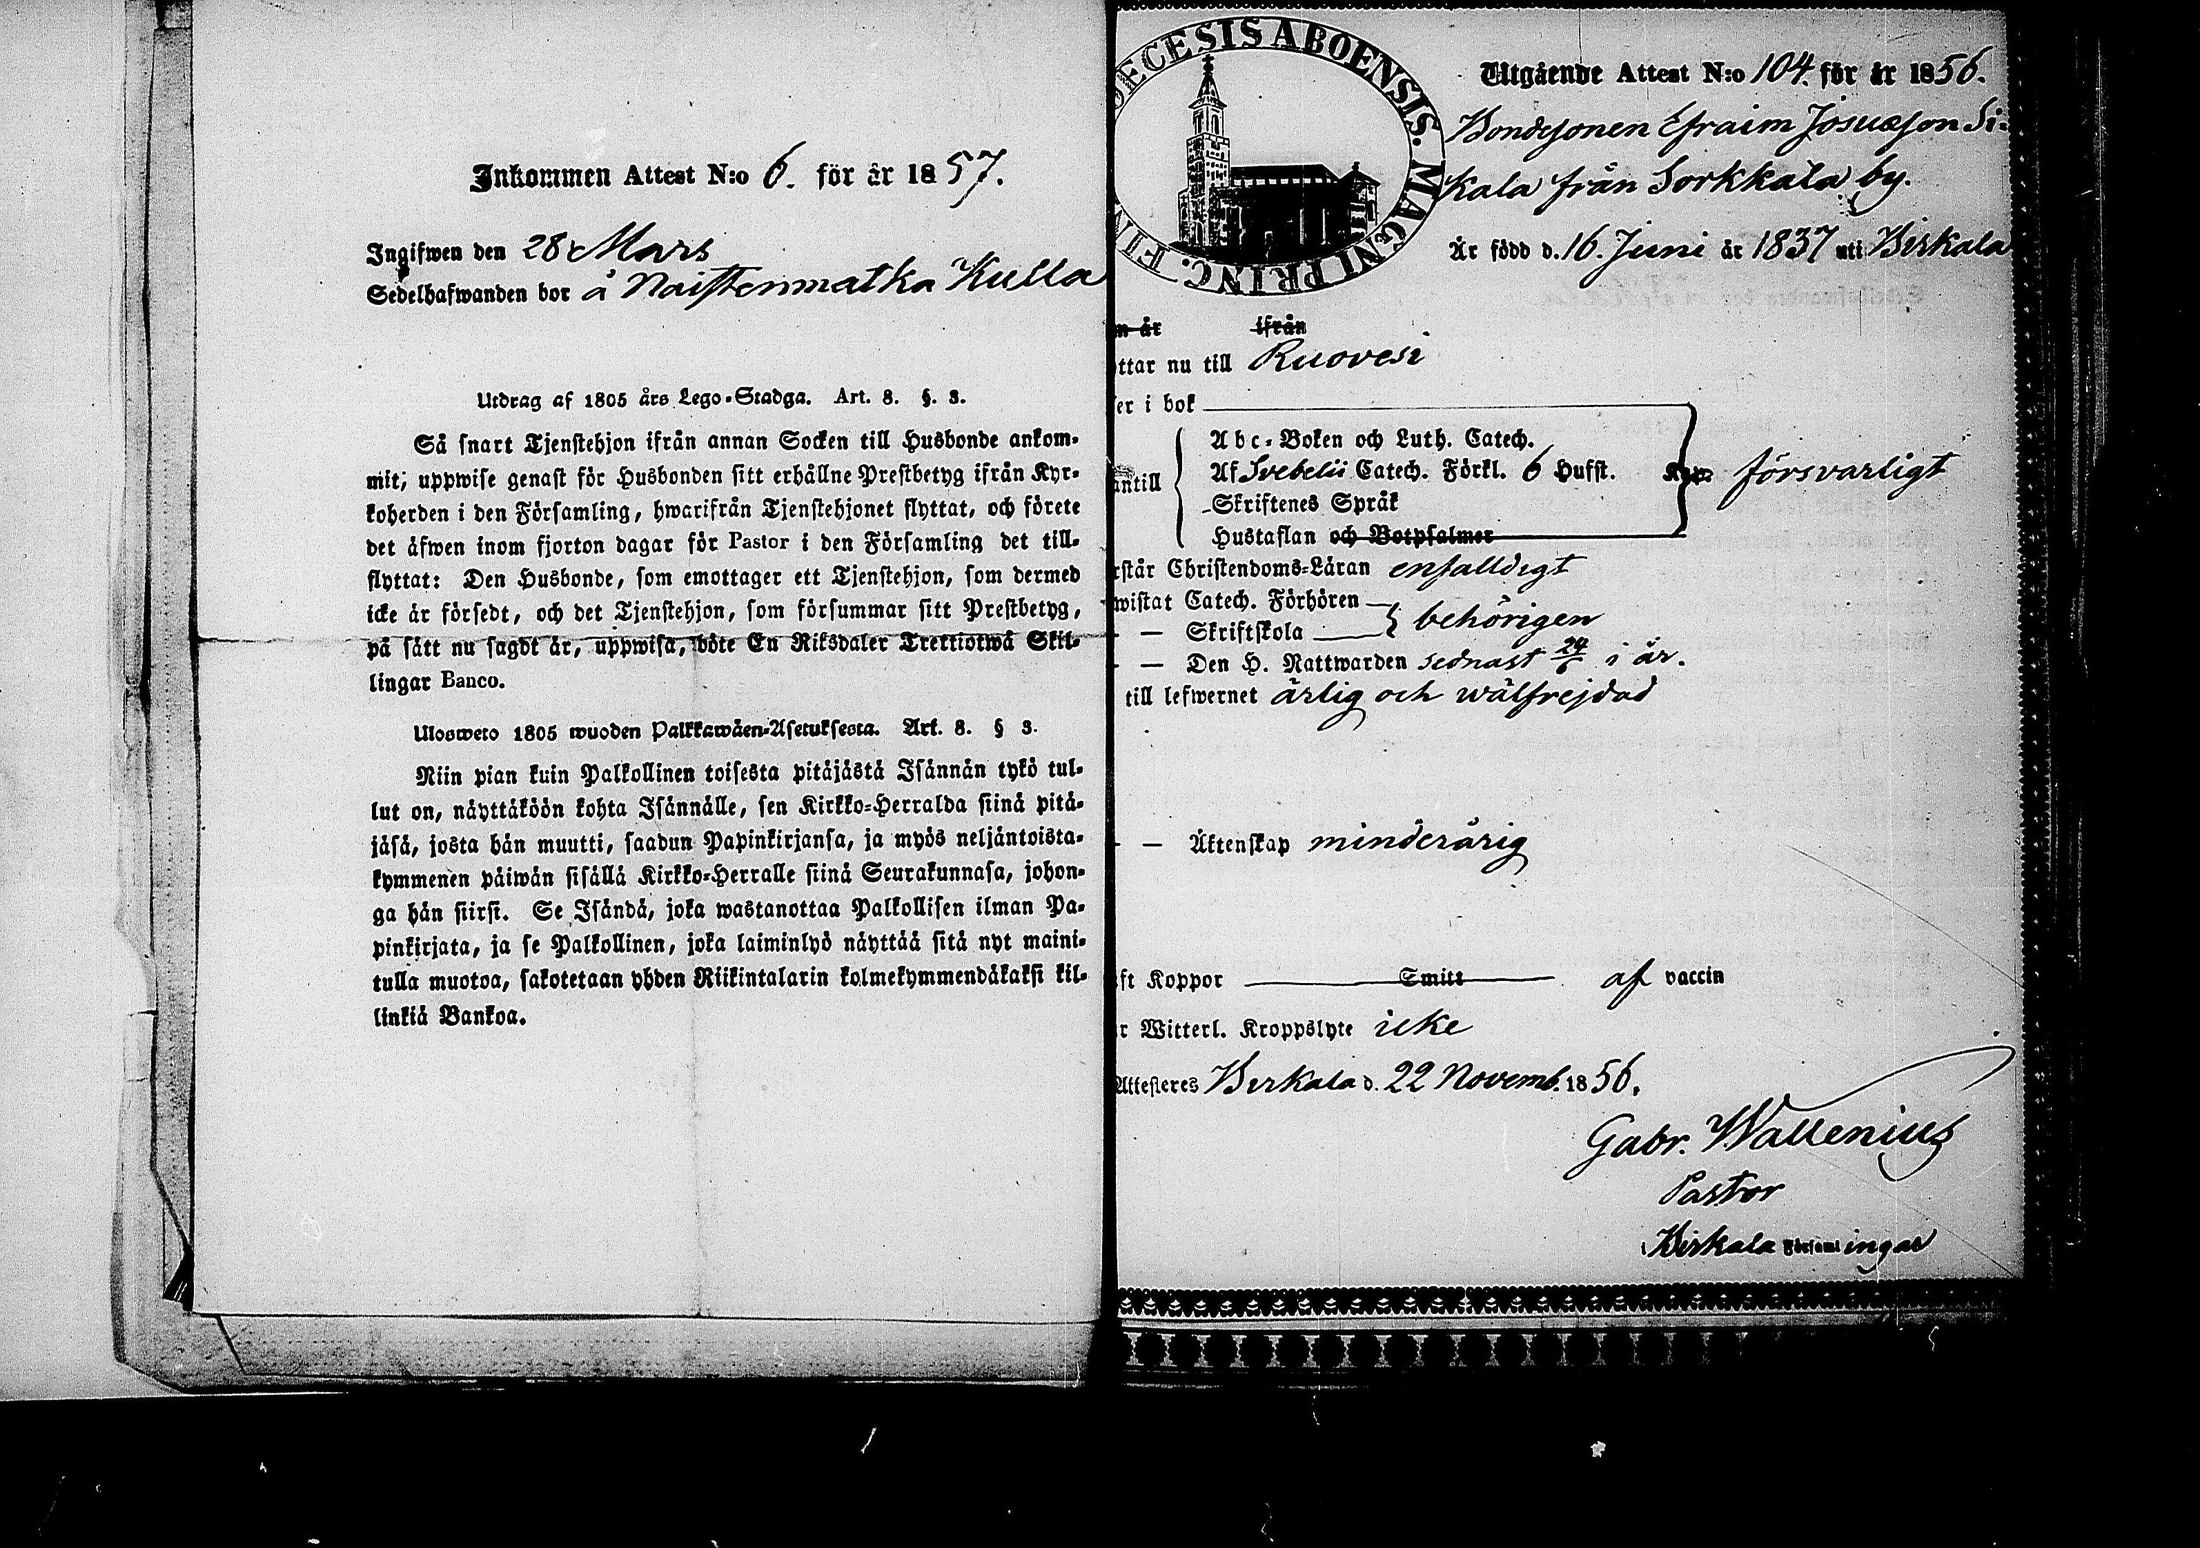 Inkommen Attest N:o 6. för år 1857.
Ingifwen den 28 Mars
Sedelhafwanden bor å Naistenmatka Kulla
Utdrag af 1805 års Lego-Stadga. Art. 8. §. 3.
Så snart Tjenstehjon ifrån annan Socken till Husbonde ankom-
mit, uppwise genast för Husbonden sitt erhållne Prestbetyg ifrån Kyr-
koherden i den Församling, hwarifrån Tjenstehjonet flyttat, och förete
det äfwen inom fjorton dagar för Pastor i den Församling det till-
flyttat: Den Husbonde, som emottager ett Tjenstehjon, som dermed
icke är försedt, och det Tjenstehjon, som försummar sitt Prestbetyg,
på sätt nu sagdt är, uppwisa, böte En Riksdaler Trettiotwå Skil-
lingar Banco.
Ulosweto 1805 wuoden Palkkawäen-Asetuksesta. Art. 8. § 3.
Niin pian kuin Palkollinen toisesta pitäjästä Isännän tykö tul-
lut on, näyttäköön kohta Isännälle, sen Kirkko-Herralda siinä pitä-
jäsä, josta hän muutti, saadun Papinkirjansa, ja myös neljäntoista-
kymmenen päiwän sisällä Kirkko-Herralle siinä Seurakunnasa, johon-
ga hän siirsi. Se Isändä, joka wastanottaa Palkollisen ilman Pa-
pinkirjata, ja se Palkollinen, joka laiminlyö näyttää sitä nyt maini-
tulla muotoa, sakotetaan yhden Riikintalarin kolmekymmendäkaksi kil-
linkiä Bankoa.
ŒCESIS ABOENSIS. MAGNI PRINC. FIN
Utgående Attest N:o 104. för år 1856.
Bondesonen Efraim Josuæson Si-
kala från Sorkkala by.
Är född d. 16. Juni år 1837 uti Birkala
n år ifrån
ttar nu till Ruovesi
er i bok
Abc-Boken och Luth. Catech.
Af Svebelii Catech. Förkl. 6 Hufst. försvarligt
antill
Skriftenes Språk
Hustaflan och Botpsalmer
rstår Christendoms-Läran enfalldigt
wistat Catech. Förhören
— Skriftskola behörigen
— Den H. Nattwarden sednast 24/6 i år.
till lefwernet ärlig och wälfrejdad
— Äktenskap minderårig
ft Koppor Smitt af vaccin
r Witterl. Kroppslyte icke
Attesteres Birkala d. 22 Novemb. 1856.
Gabr. Wallenius
Pastor
i Birkala Församlingar